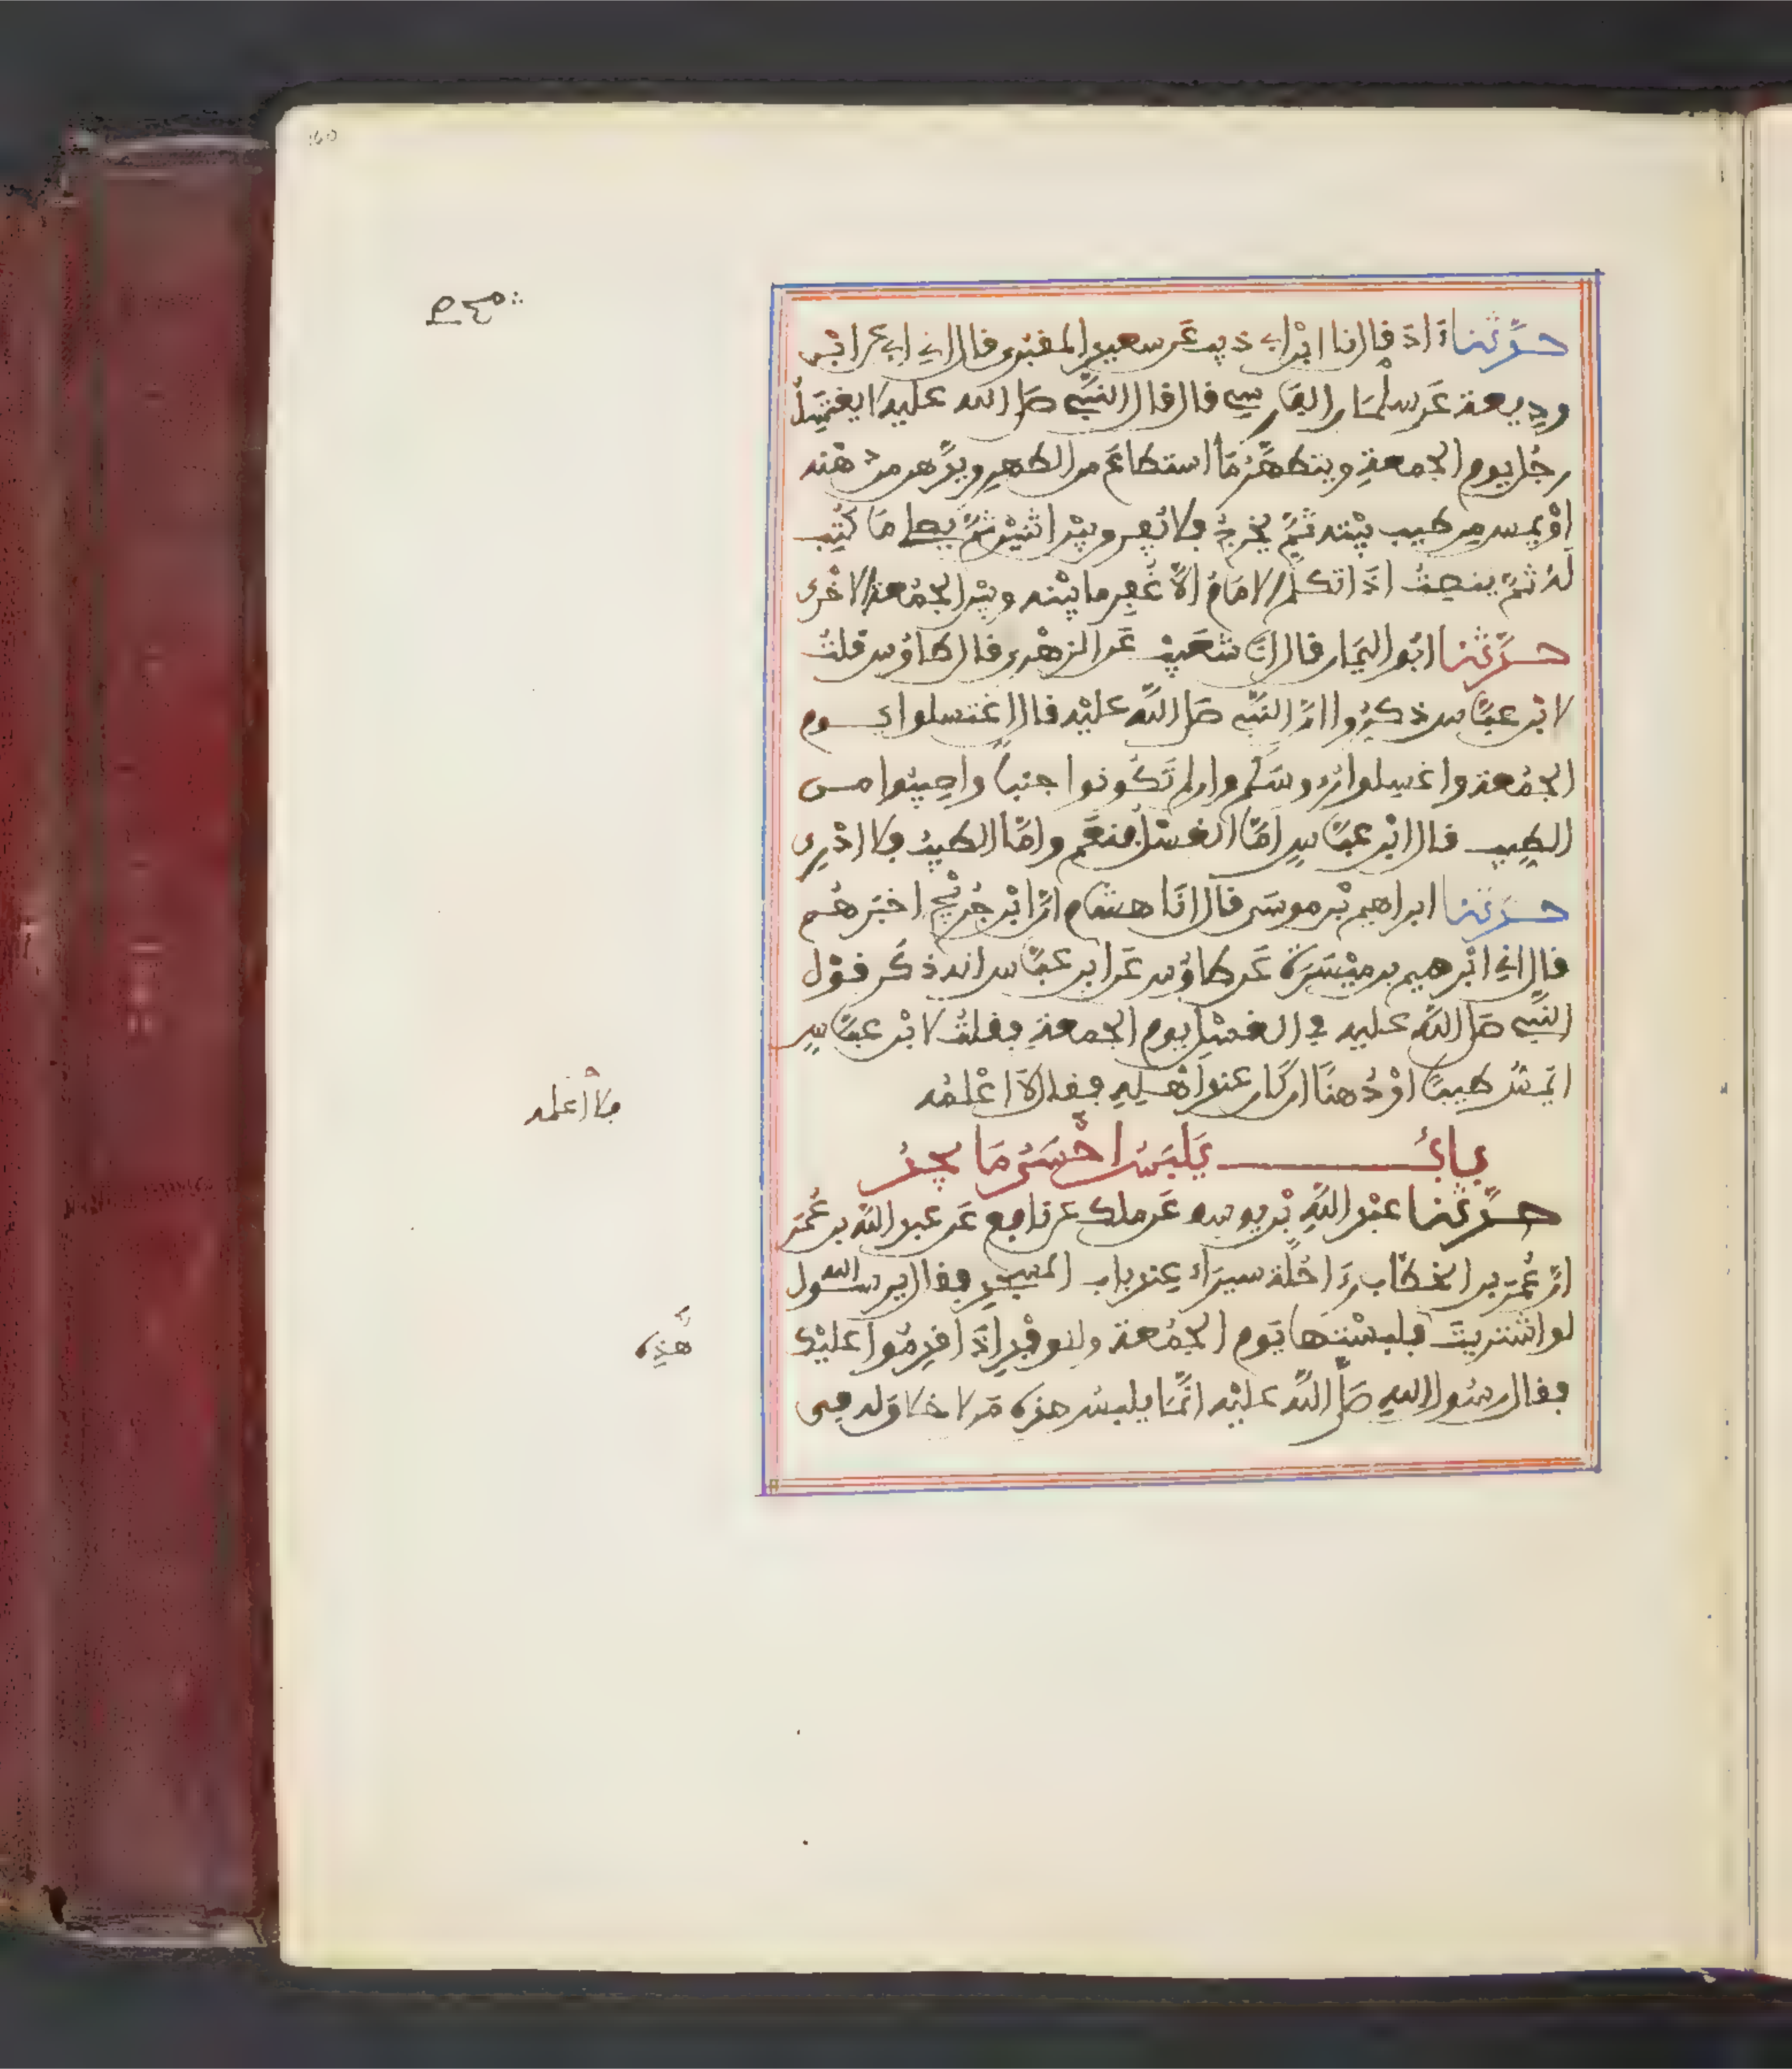 حدثنا ءادم قال نا ابن ابي ذيب عن سعيد المقبري قال اني ابي عن ابن
وديعة عن سلمان الفارسي قال قال النبي صلى الله عليه لا يغتسل
رجل يوم الجمعة ويتطهر ما استطاع من الطهر ويدهن من دهنه
او يمس من طيب بيته ثم يخرج فلا يفرق بين اثنين ثم يصلي ما كتب
له ثم ينصت اذا تكلم الامام الا غفر ما بينه وبين الجمعة الاخرى
حدثنا ابو اليمان قال انا شعيب عن الزهري قال طاوس قلت
لابن عباس ذكروا ان النبي صلى الله عليه قال اغتسلوا يوم
الجمعة واغسلوا رءوسكم وان لم تكونوا جنبا واصيبوا من
الطيب قال ابن عباس اما الغسل فنعم واما الطيب فلا ادري
حدثنا ابراهيم بن موسى قال انا هشام ان ابن جريج اخبرهم
قال اني ابرهيم بن ميسرة عن طاوس عن ابن عباس انه ذكر قول
النبي صلى الله عليه في الغسل يوم الجمعة فقلت لابن عباس
ايمس طيبا او دهنا ان كان عند اهله فقال لا اعلمه
فلا أعلمه
باب يلبس احسن ما يجد
حدثنا عبد الله بن يوسف عن ملك عن نافع عن عبد الله بن عمر
ان عمر بن الخطاب رءا حلة سيراء عند باب المسجد فقال يرسول الله
لو اشتريت فلبستها يوم الجمعة وللوفد اذا قدموا عليك
هذه
فقال رسول الله صلى الله عليه انما يلبس هذه من لا خلاق له في